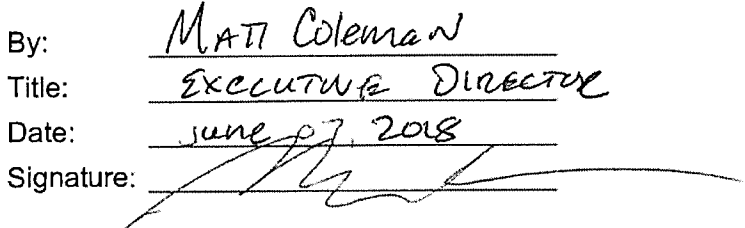 By: Matt Coleman
Title: Executive Director
Date: June 07, 2018
Signature: